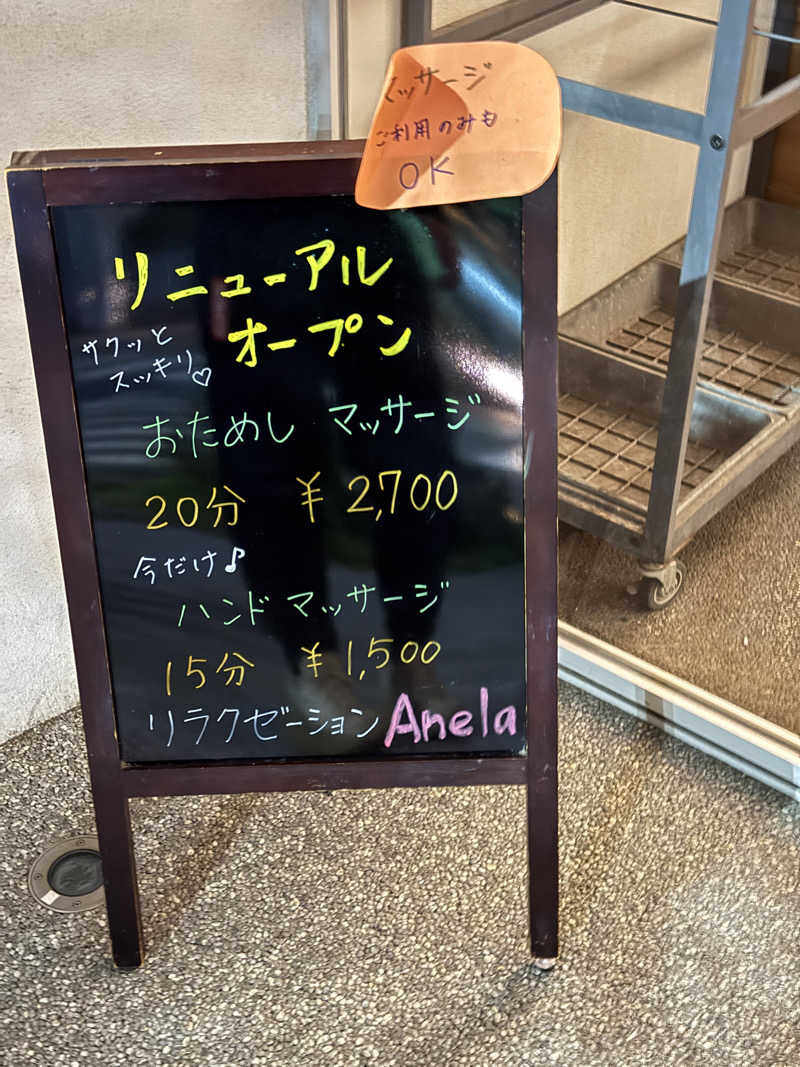 マッサージ
ご利用のみも
OK
リニューアル
オープン
サクッと
スッキリ♡
おためし マッサージ
20分 ¥2,700
今だけ♪
ハンドマッサージ
15分 ¥1,500
リラクゼーション Anela